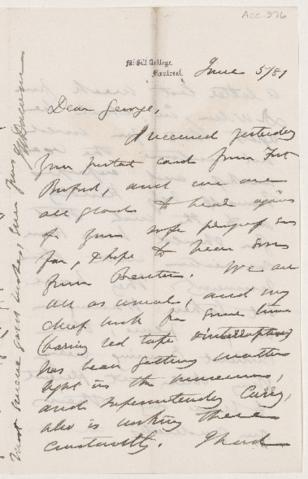 Acc-976
McGill College,
Montreal.
June 5/81
Dear George,
I received yesterday
your postal card from Fort
Buford, and we are
all glad to hear again
of your safe progress so
far, & hope to hear soon
from Benton. We are
all as usual, and my
chief work for some time
(barring red tape interruptions)
has been getting matters
right in the museum,
and superintending Curry,
who is working there
constantly. I had
most sincere good wishes, Ever yours